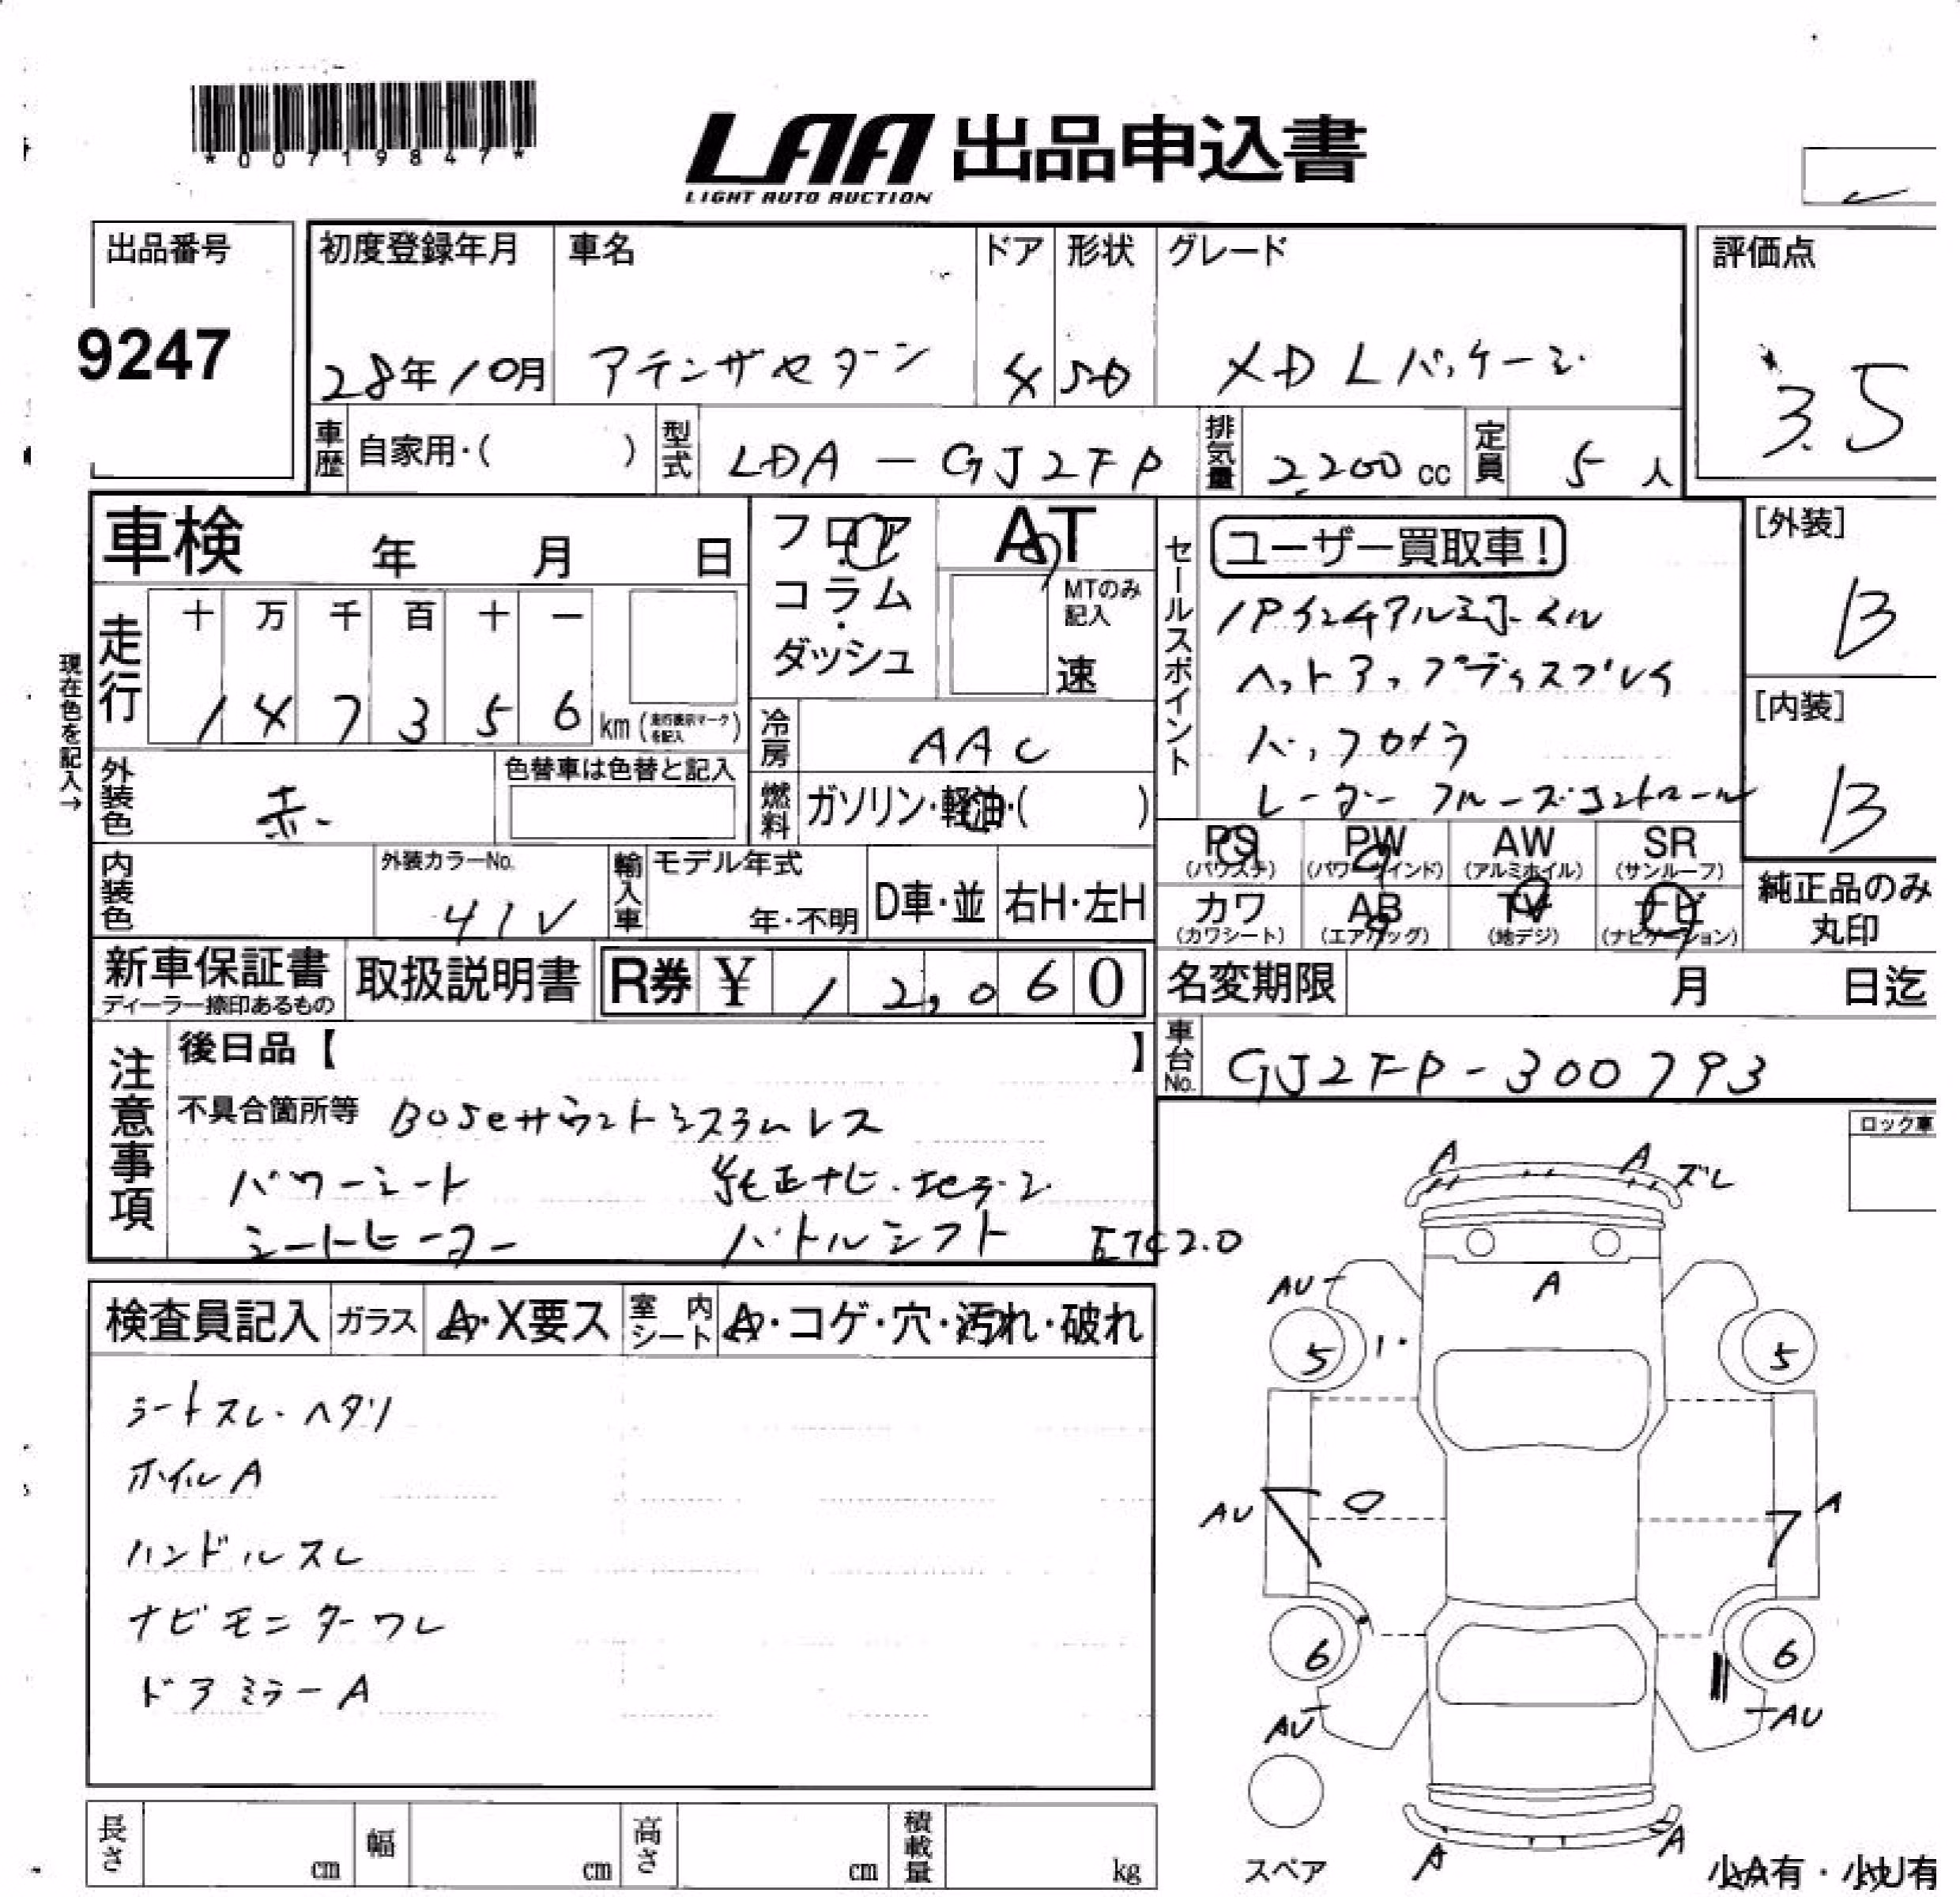 *00719847*
LAA 出品申込書
LIGHT AUTO AUCTION
出品番号
9247
初度登録年月
28年10月
車名
アテンザセダン
ドア
4
形状
SD
グレード
XD Lパッケージ
評価点
3.5
車歴
自家用・( )
型式
LDA-GJ2FP
排気量
2,200cc
定員
5人
車検 年 月 日
フロア・コラム・ダッシュ
AT
MTのみ記入
速
セールスポイント
ユーザー買取車!
19インチアルミホイル
ヘットアップディスプレイ
バックカメラ
レーダークルーズコントロール
[外装]
B
[内装]
B
現在色を記入→
走行
十 万 千 百 十 一
1 4 7 3 5 6 km (走行表示マークを記入)
冷房
AAC
外装色
赤
色替車は色替と記入
燃料
ガソリン・軽油・( )
内装色
外装カラーNo.
41V
輸入車
モデル年式
年・不明
D車・並
右H・左H
PS (パワステ)
PW (パワーウインド)
AW (アルミホイル)
SR (サンルーフ)
カワ (カワシート)
AB (エアバッグ)
TV (地デジ)
ナビ (ナビゲーション)
純正品のみ丸印
新車保証書
ディーラー捺印あるもの
取扱説明書
R券 ¥ 12,060
名変期限 月 日迄
車台No.
GJ2FP-300793
注意事項
後日品【 】
不具合箇所等 Boseサウンドシステムレス
パワーシート 純正ナビ・地デジ
シートヒーター パドルシフト ETC2.0
検査員記入
ガラス
A・X要ス
室内シート
A・コゲ・穴・汚れ・破れ
シートスレ・ヘタリ
ホイルA
ハンドルスレ
ナビモニターワレ
ドアミラーA
ロック車
A A ズレ
AU A
5 1 5
AU A
6 6
AU AU
A A
スペア
小A有・小U有
長さ cm
幅 cm
高さ cm
積載量 kg